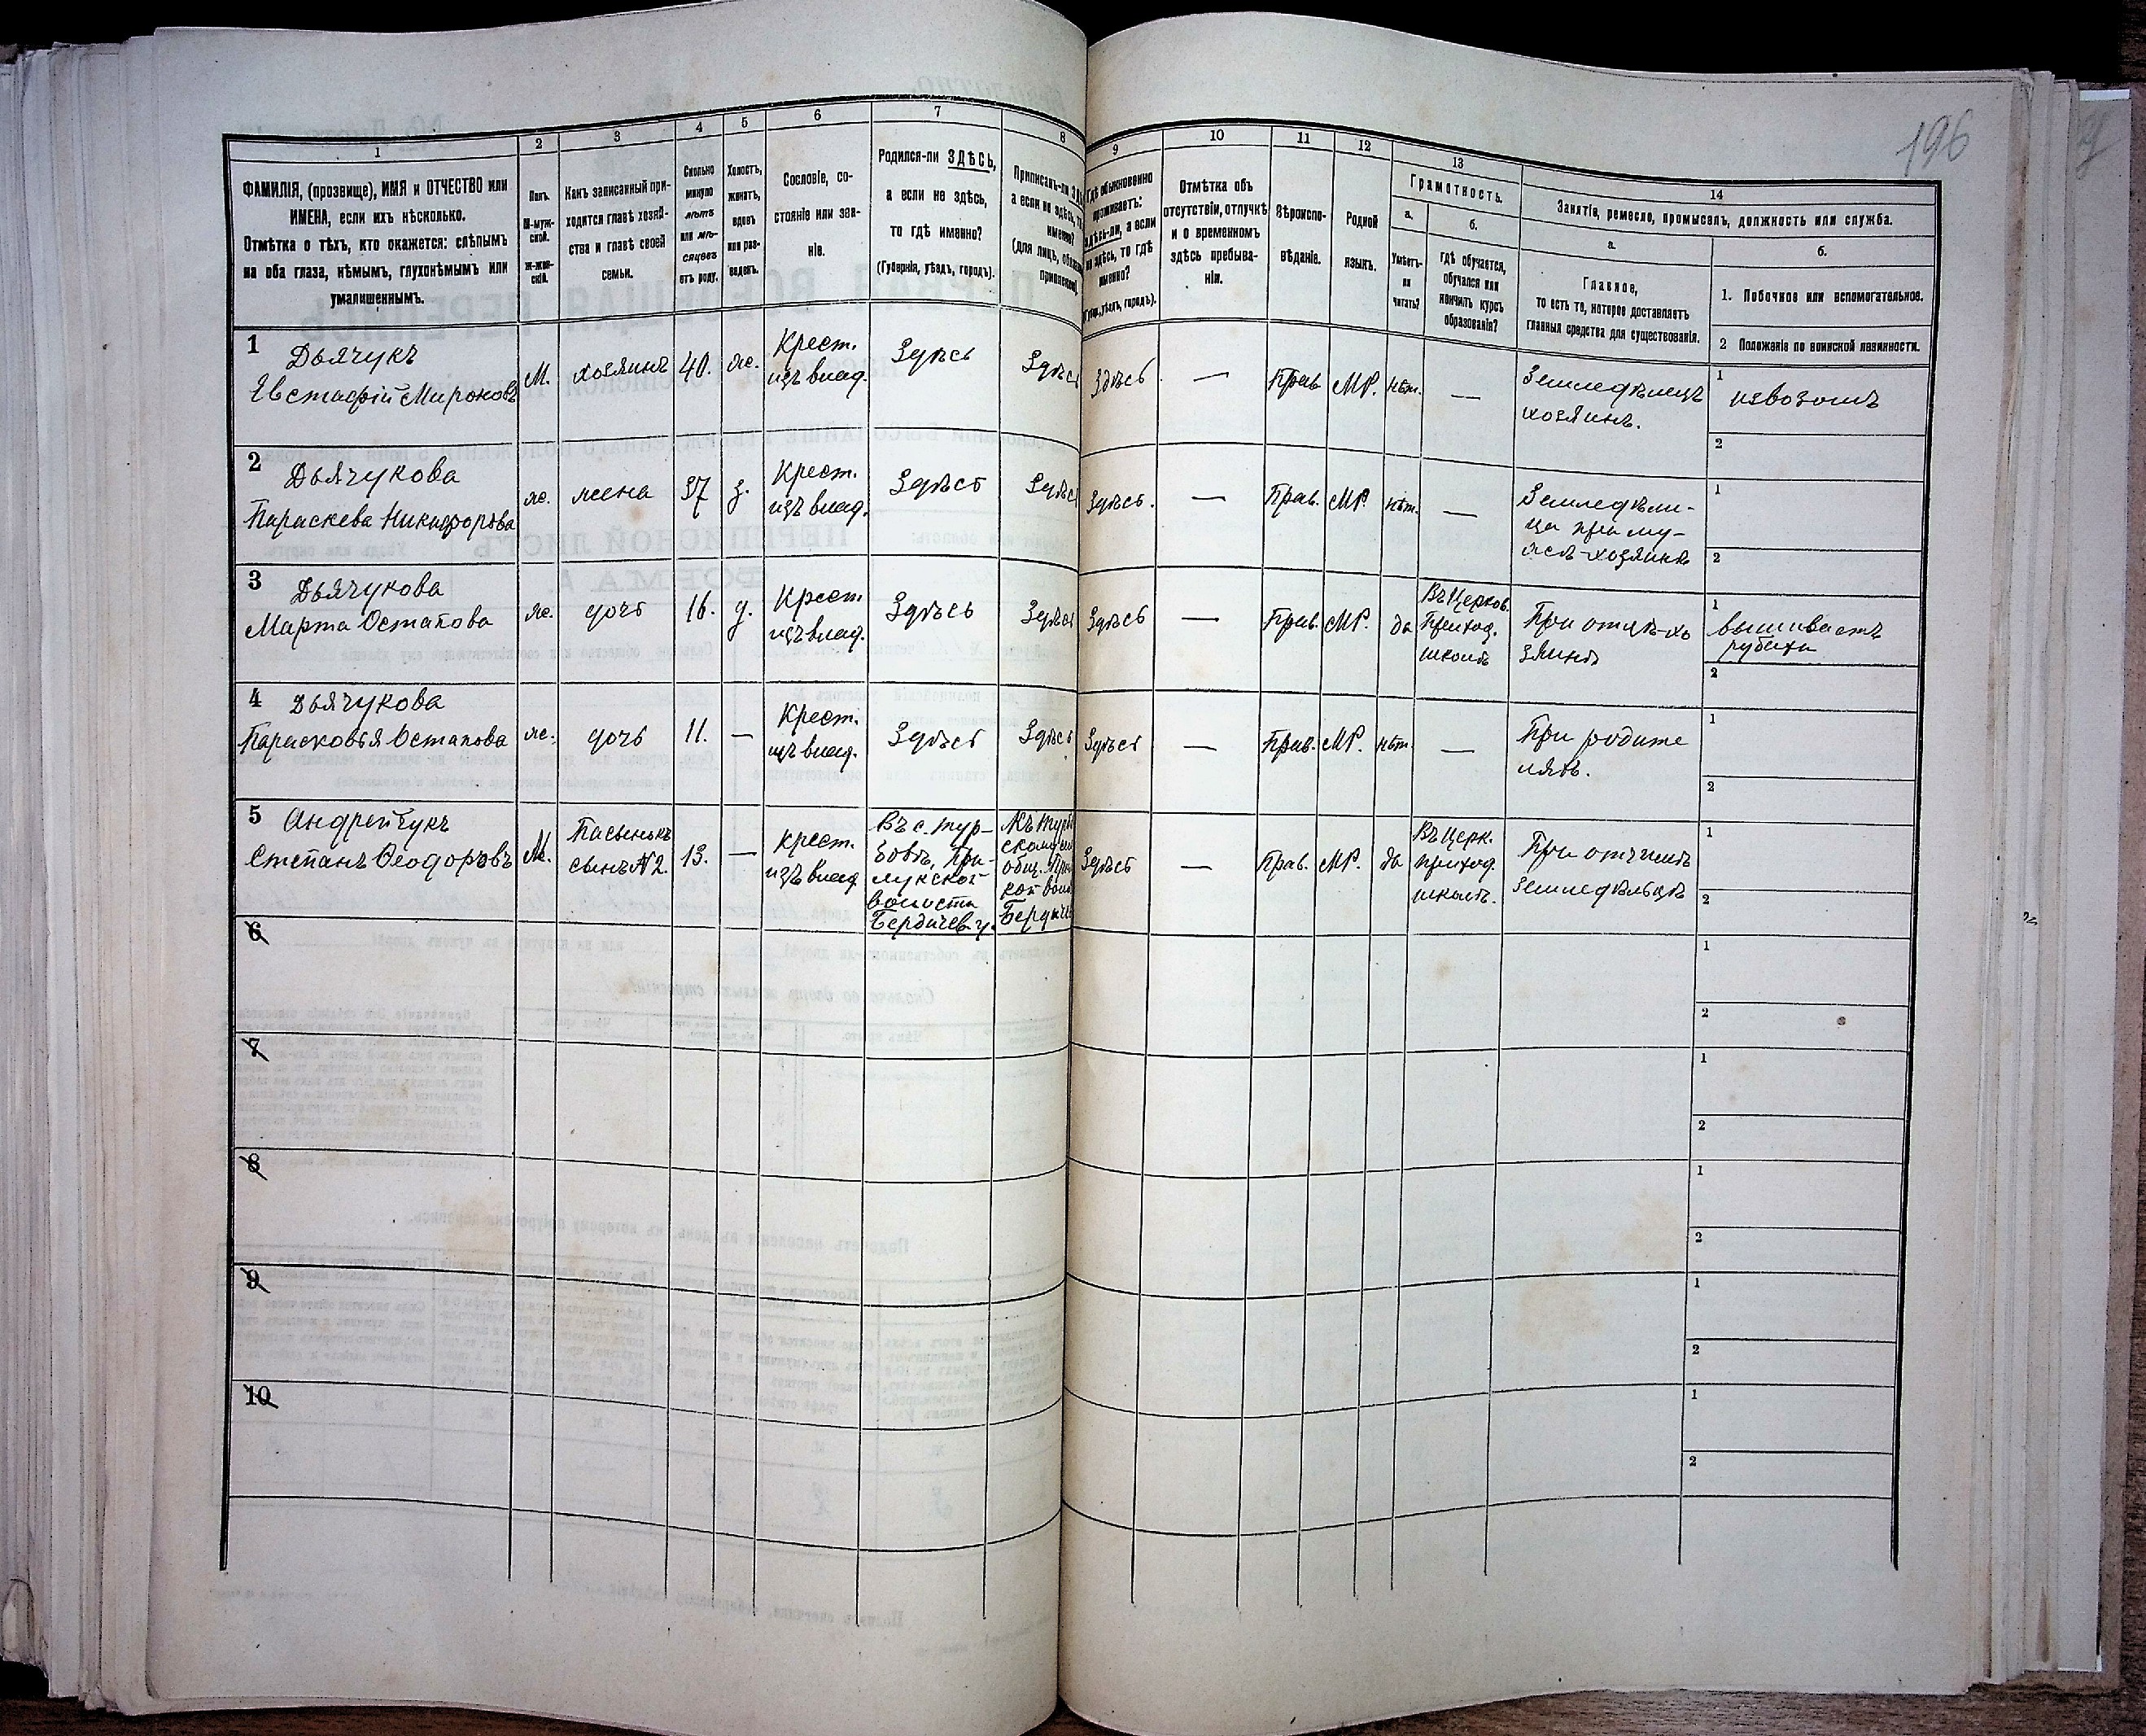 196
1
2
3
4
5
6
7
8
9
10
11
12
13
14
ФАМИЛІЯ, (прозвище), ИМЯ и ОТЧЕСТВО или
ИМЕНА, если ихъ нѣсколько.
Отмѣтка о тѣхъ, кто окажется: слѣпымъ
на оба глаза, нѣмымъ, глухонѣмымъ или
умалишеннымъ.
Полъ.
М-муж-
ской.
Ж-жен-
скій.
Какъ записанный при-
ходится главѣ хозяй-
ства и главѣ своей
семьи.
Сколько
минуло
лѣтъ
или мѣ-
сяцевъ
отъ роду.
Холостъ,
женатъ,
вдовъ
или раз-
веденъ.
Сословіе, со-
стояніе или зва-
ніе.
Родился-ли ЗДѢСЬ,
а если не здѣсь,
то гдѣ именно?
(Губернія, уѣздъ, городъ).
Приписанъ-ли
а если не здѣсь,
именно?
(для лицъ,
Гдѣ обыкновенно
проживаетъ:
здѣсь-ли, а если
не здѣсь, то гдѣ
именно?
уѣздъ, городъ).
Отмѣтка объ
отсутствіи, отлучкѣ
и о временномъ
здѣсь пребыва-
ніи.
Вѣроиспо-
вѣданіе.
Родной
языкъ.
Грамотность.
а.
Умѣетъ-
ли
читать?
б.
гдѣ обучается,
обучался или
кончилъ курсъ
образованія?
Занятіе, ремесло, промыселъ, должность или служба.
а.
Главное,
то есть то, которое доставляетъ
главныя средства для существованія.
б.
1. Побочное или вспомогательное.
2 Положеніе по воинской повинности.
1
Дьячукъ
Евстафій Мироновъ
М.
хозяинъ
40.
ж.
Крест.
изъ влад.
Здѣсь
Здѣсь
Здѣсь
—
Прав.
МР.
нѣт.
—
Земледѣлецъ
хозяинъ.
1
извозомъ
2
2
Дьячукова
Параскева Никифорова
ж.
жена
37
з.
Крест.
изъ влад.
Здѣсь
Здѣсь
Здѣсь.
—
Прав.
МР.
нѣт.
—
Земледѣли-
ца при му-
жѣ-хозяинѣ
1
2
3
Дьячукова
Марта Остапова
ж.
дочь
16.
д.
Крест
изъ влад.
Здѣсь
Здѣсь
Здѣсь
—
Прав.
МР.
да
Въ Церков.
Приход.
школѣ
При отцѣ-хо
зяинѣ
1
вышиваетъ
рубахи
2
4
Дьячукова
Парасковья Остапова
ж.
дочь
11.
—
Крест.
изъ влад.
Здѣсь
Здѣсь
Здѣсь
—
Прав.
МР.
нѣт.
—
При родите
ляхъ.
1
2
5
Андрейчукъ
Степанъ Ѳеодоровъ
М.
Пасынокъ
сынъ №2.
13.
—
крест.
изъ влад
Въ с. Тур-
бовѣ, При-
лукской
волости
Бердичев. у.
Здѣсь
—
Прав.
МР.
да
Въ Церк.
приход.
школѣ.
При отчимѣ
земледѣльцѣ
1
2
6
1
2
7
1
2
8
1
2
9
1
2
10
1
2